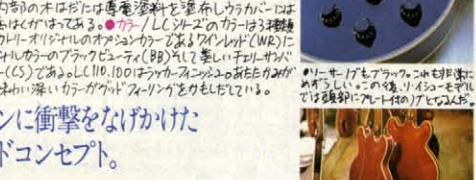 内部の木はだには導電塗料を塗布しウラカバーには
はくがはってある。●カラー/LCシリーズのカラーは3種類
クトリーオリジナルのオプションカラーであるワインレッド(WR)に
ャルカラーのブラックビューティ(BB)そして美しいチェリーサンバ
ー(CS)である。LC110,100はラッカーフィニッシュのあたたかみが
味わい深いカラーがグッドフィーリングをかもしだしている。
ンに衝撃をなげかけた
ドコンセプト。
●ソーサーノブもブラック。これも非常に
めずらしい。この後、リイシューモデル
では頭部にプレート付のノブとなるんだ。